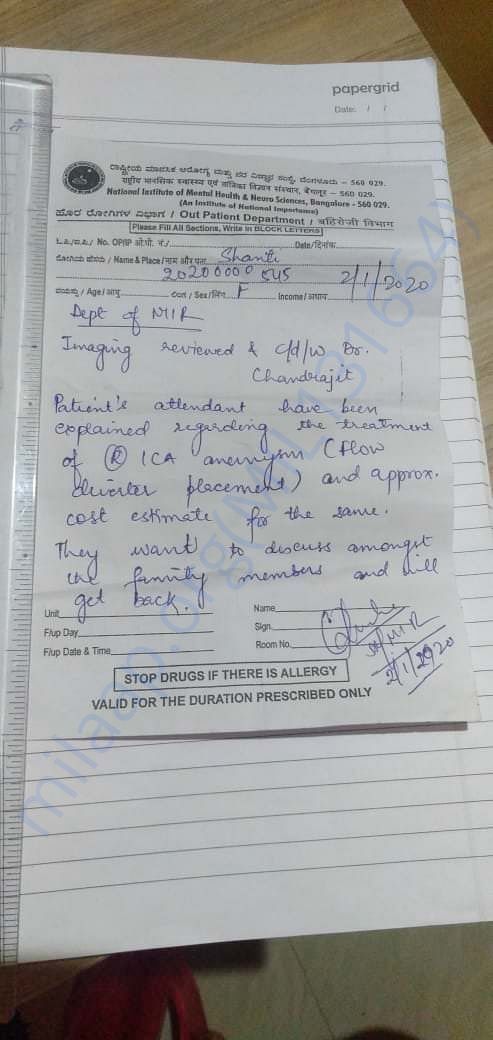 papergrid
Date: / /
ರಾಷ್ಟ್ರೀಯ ಮಾನಸಿಕ ಆರೋಗ್ಯ ಮತ್ತು ನರ ವಿಜ್ಞಾನ ಸಂಸ್ಥೆ, ಬೆಂಗಳೂರು – 560 029.
राष्ट्रीय मानसिक स्वास्थ्य एवं तंत्रिका विज्ञान संस्थान, बेंगलूर – 560 029.
National Institute of Mental Health & Neuro Sciences, Bangalore - 560 029.
(An Institute of National Importance)
ಹೊರ ರೋಗಿಗಳ ವಿಭಾಗ / Out Patient Department / बहिरोगी विभाग
Please Fill All Sections, Write in BLOCK LETTERS
No. OP/IP ओ.पी. नं./ Date/दिनांक
ರೋಗಿಯ ಹೆಸರು / Name & Place/नाम और पता Shanti
20200000545 2/1/2020
ವಯಸ್ಸು / Age/आयु ಲಿಂಗ / Sex/लिंग F Income/आय
Dept of NIR
Imaging reviewed & c/d/w Dr.
Chandrajit
Patient's attendant have been
explained regarding the treatment
of (R) ICA aneurysm (Flow
diverter placement) and approx.
cost estimate for the same.
They want to discuss amongst
the family members and will
get back.
Unit Name
F/up Day Sign.
F/up Date & Time Room No.
NIR
2/1/2020
STOP DRUGS IF THERE IS ALLERGY
VALID FOR THE DURATION PRESCRIBED ONLY
milaap.org(MIL131664)